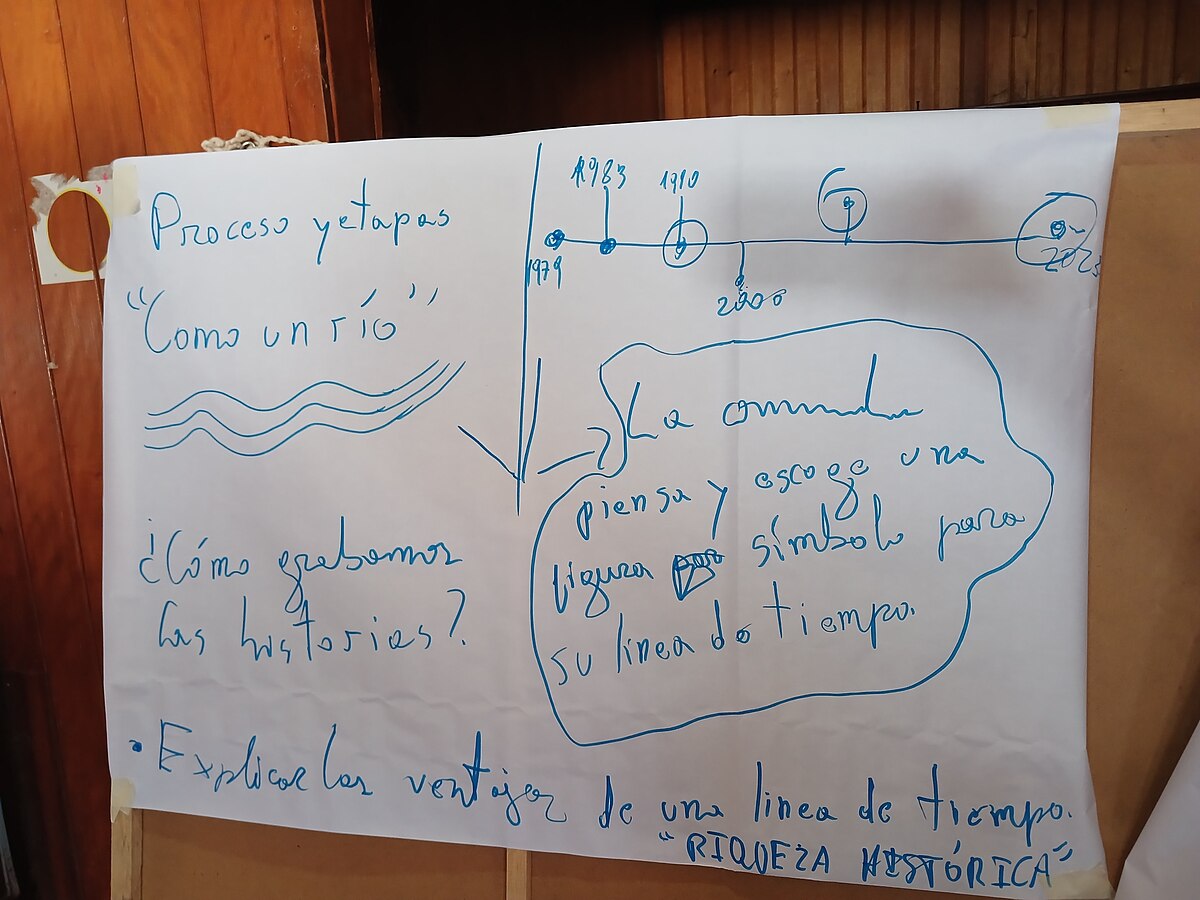 Proceso y etapas
"Como un río"
¿Cómo grabamos
las historias?
1983
1990
1979
2000
2023
La comunidad
piensa y escoge una
figura símbolo para
su línea de tiempo.
• Explicar las ventajas de una línea de tiempo.
"RIQUEZA HISTÓRICA"